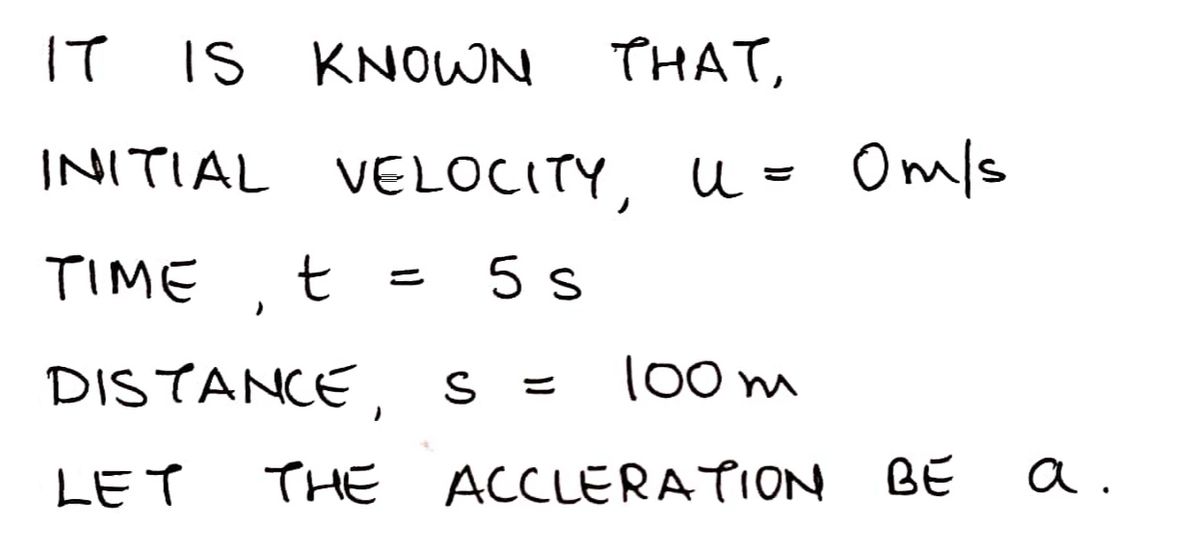 IT IS KNOWN THAT,
INITIAL VELOCITY, u = 0m/s
TIME, t = 5 s
DISTANCE, s = 100 m
LET THE ACCLERATION BE a.